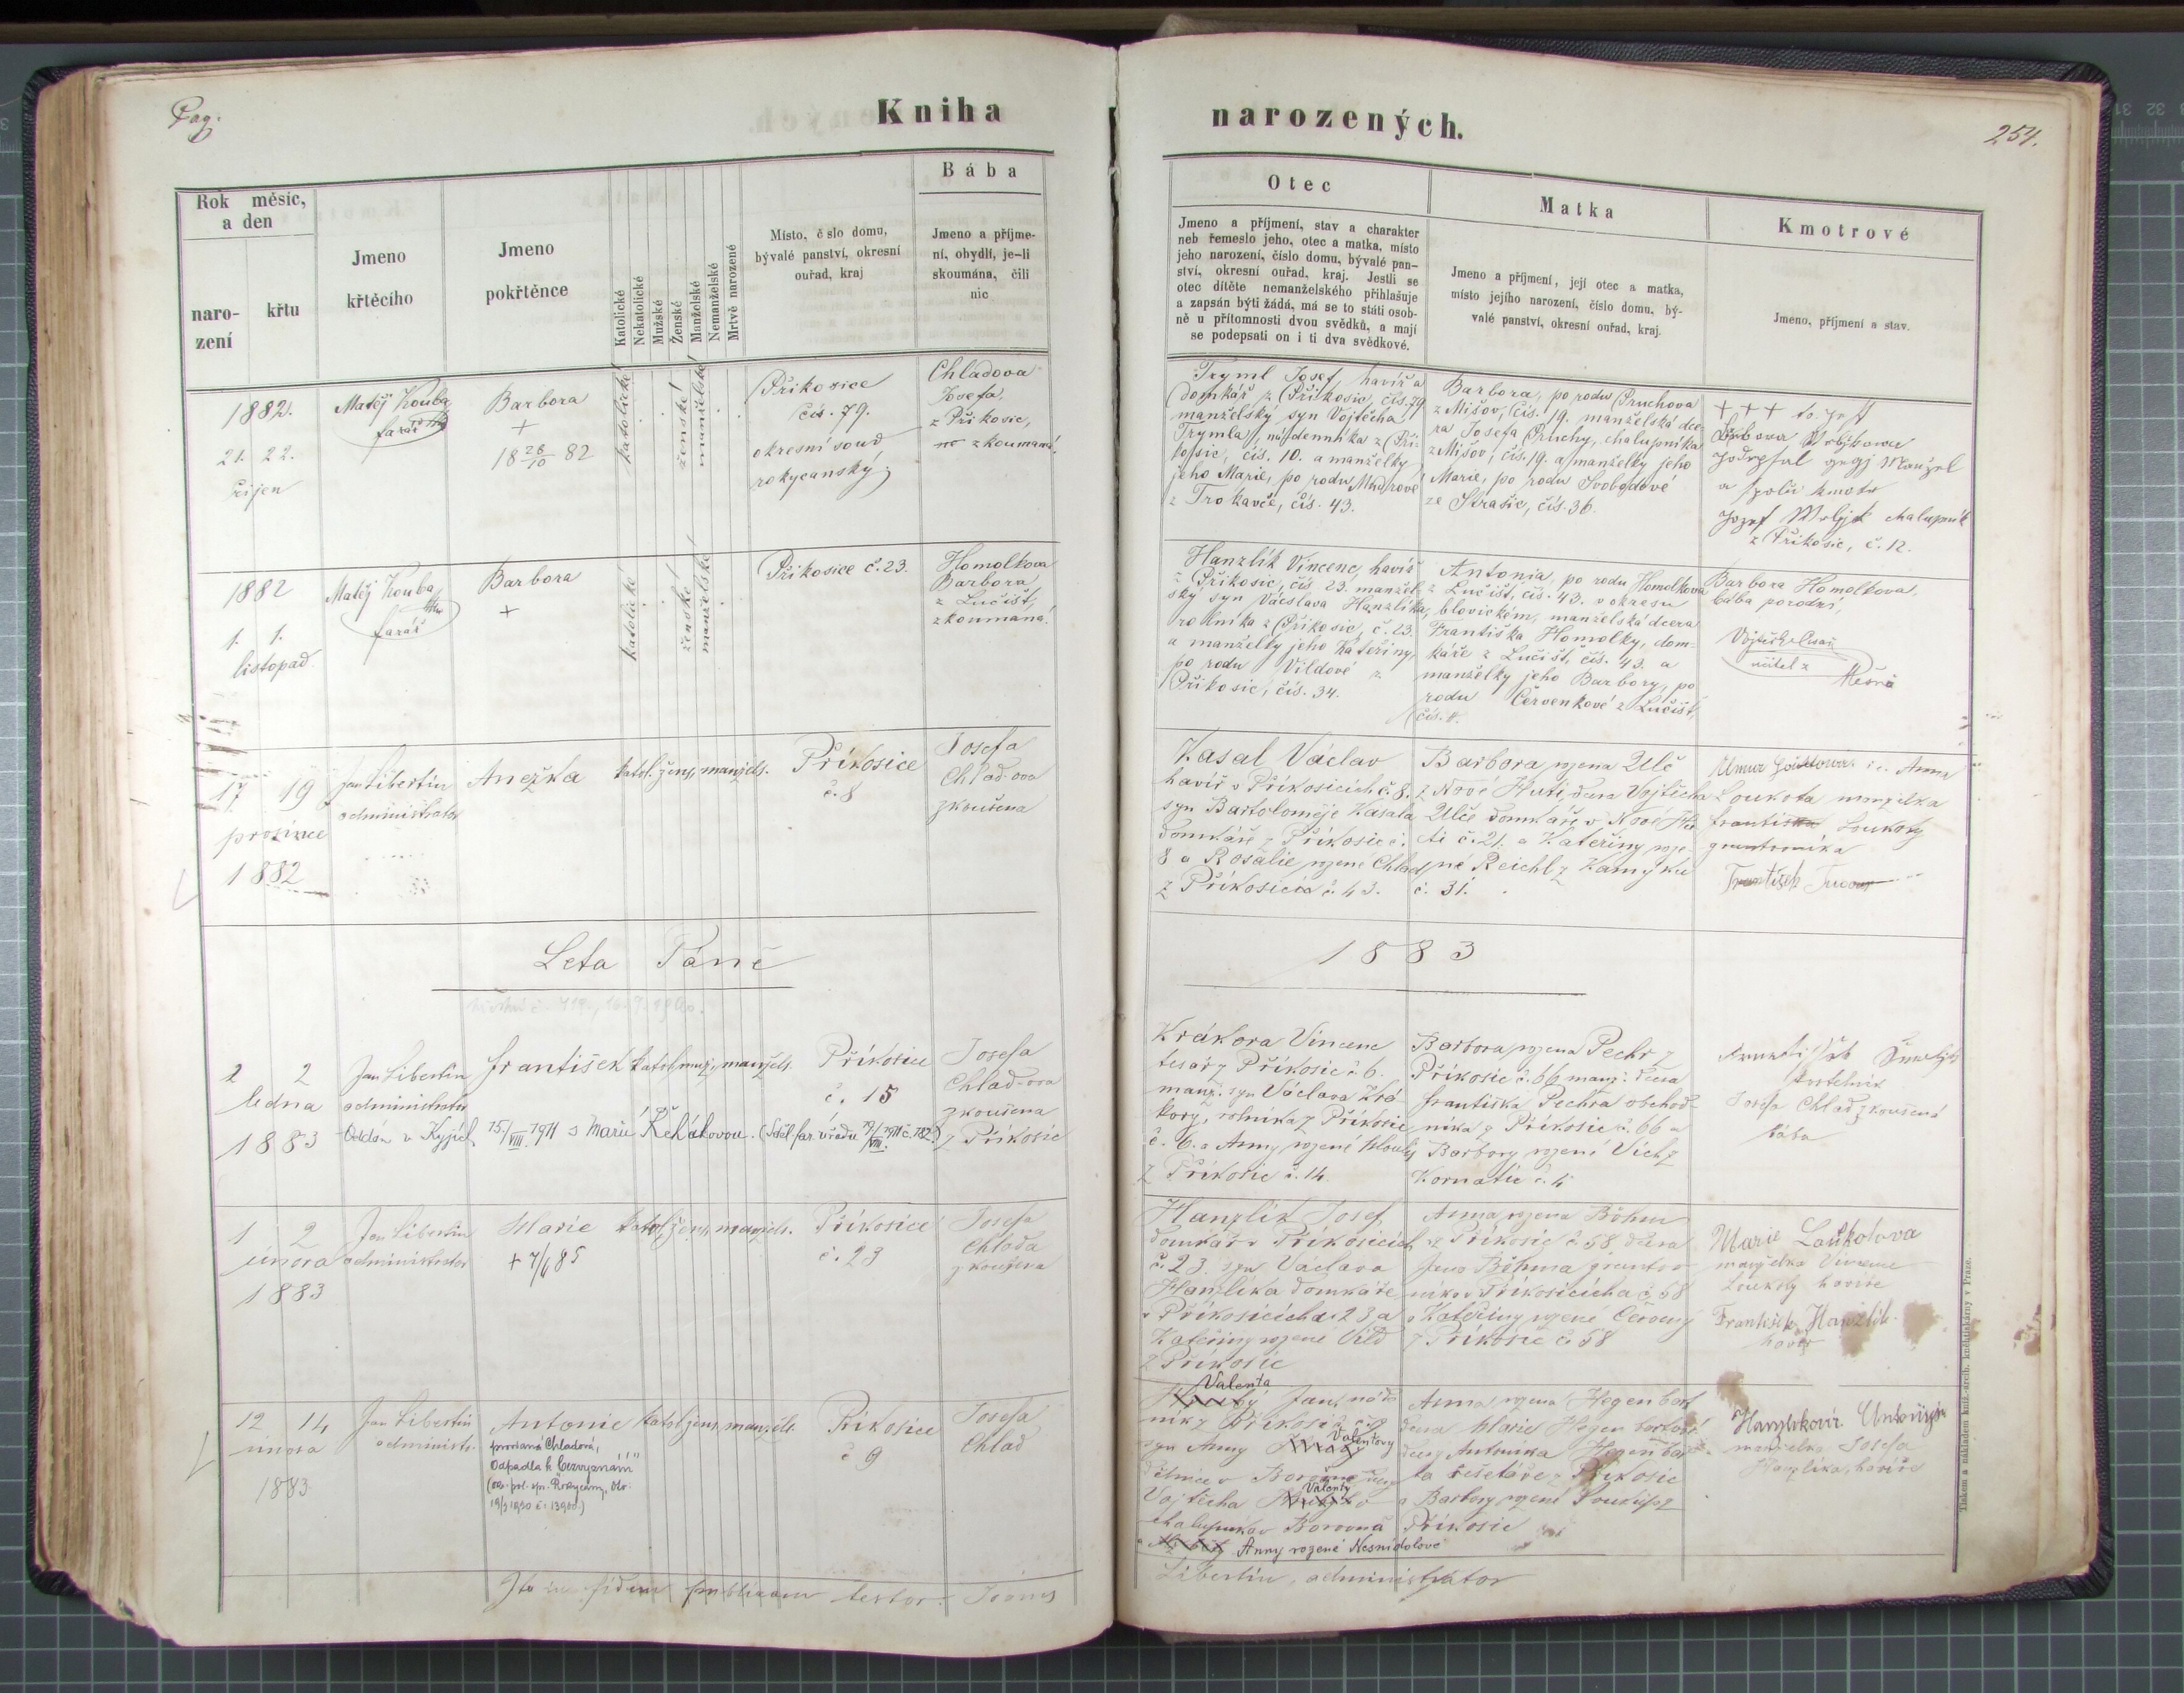 Pag.
Kniha
narozených.
254.
Rok měsíc,
a den
naro-
zení
křtu
Jmeno
křtěcího
Jmeno
pokřtěnce
Katolické
Nekatolické
Mužské
Ženské
Manželské
Nemanželské
Mrtvě narozené
Místo, č slo domu,
bývalé panství, okresní
ouřad, kraj
Bába
Jmeno a příjme-
ní, obydlí, je-li
skoumána, čili
nic
Otec
Jmeno a příjmení, stav a charakter
neb řemeslo jeho, otec a matka, místo
jeho narození, číslo domu, bývalé pan-
ství, okresní ouřad, kraj. Jestli se
otec dítěte nemanželského přihlašuje
a zapsán býti žádá, má se to státi osob-
ně u přítomnosti dvou svědků, a mají
se podepsati on i ti dva svědkové.
Matka
Jmeno a příjmení, její otec a matka,
místo jejího narození, číslo domu, bý-
valé panství, okresní ouřad, kraj.
Kmotrové
Jmeno, příjmení a stav.
1882.
21. 22.
říjen
Matěj Kouba
farář
Barbora
+
18 28/10 82
katolické
ženské
manželské
Příkosice
čís. 79.
okresní soud
rokycanský
Chladova
Josefa,
z Příkosic,
zkoumaná.
Tryml Josef, havíř a
domkář z Příkosic, čís. 79
manželský syn Vojtěcha
Trymla, nádenníka z Pří-
kosic, čís. 10. a manželky
jeho Marie, po rodu Mudrové
z Trokavče, čís. 43.
Barbora, po rodu Pruchova
z Mišov, čís. 19. manželská dce-
ra Josefa Pruchy, chalupníka
z Mišov, čís. 19. a manželky jeho
Marie, po rodu Svobodové
ze Strašic, čís. 36.
+ + +
a spolu kmotr
Jozef chalupník
z Příkosic, č. 12.
1882
1. 1.
listopad
Matěj Kouba
farář
Barbora
+
katolické
ženské
manželské
Příkosice č. 23.
Homolkova
Barbora
z Lučišť,
zkoumaná.
Hanzlík Vincenc, havíř
z Příkosic, čís. 23. manžel-
ský syn Václava Hanzlíka,
rolníka z Příkosic, č. 23.
a manželky jeho Kateřiny,
po rodu Vildové z
Příkosic, čís. 34.
Antonia, po rodu Homolkova
z Lučišť, čís. 43. v okresu
blovickém, manželská dcera
Františka Homolky, dom-
káře z Lučišť, čís. 43. a
manželky jeho Barbory, po
rodu Červenkové z Lučišť,
Barbora Homolkova,
bába porodní,
učitel z
17 19
prosince
1882
Jan Libertin
administrator
Anežka
katol. žens. manžels.
Příkosice
č. 8
Josefa
Chlad-ova
zkoušena
Kasal Václav
havíř v Příkosicích č. 8.
syn Bartoloměje Kasala
domkáře z Příkosic č.
8 a Rosalie rozené Chlad
z Příkosic č. 43.
Barbora rozena Ulč
z Nové Huti, dcera Vojtěcha
Ulče domkáře v Nové Hu
ti č. 21. a Kateřiny roze-
né Reichl z Kamýku
č. 31.
Anna
Loukota manželka
Františka Loukoty
gruntovníka
František
Leta Páně
1883
2 2
ledna
1883
Jan Libertin
administrator
František
katol. muž. manžels.
Příkosice
č. 15
Josefa
Chlad-ova
zkoušena
z Příkosic
Oddán v Kyjích 15/VIII. 1911 s Marií Řehákovou. (Sděl. far. úřadu 19/VIII. 1911 č. 782)
Krákora Vincenc
tesař z Příkosic č. 6.
manž. syn Václava Krá-
kory, rolníka z Příkosic
č. 6. a Anny rozené
z Příkosic č. 14.
Barbora rozena Pechr z
Příkosic č. 66 manž. dcera
Františka Pechra obchod-
níka z Příkosic č. 66 a
Barbory rozené Vích z
Kornatic č. 4
Josefa Chlad zkoušená
bába
1 2
února
1883
Jan Libertin
administrator
Marie
+ 7/6 85
katol. žens. manžels.
Příkosice
č. 23
Josefa
Chlada
zkoušena
Hanzlík Josef
domkář v Příkosicích
č. 23. syn Václava
Hanzlíka domkáře
v Příkosicích č. 23 a
Kateřiny rozené Vild
z Příkosic
Anna rozena Böhm
z Příkosic č. 58 dcera
Jana Böhma gruntov-
níka v Příkosicích č. 58
a Kateřiny rozené Červený
z Příkosic č. 58
Marie Loukotova
manželka Vincence
Loukoty havíře
František Hanzlík
havíř
12 14
února
1883
Jan Libertin
administr.
Antonie
provdaná Chladová,
Odpadla k "Bezvyznání"
(okr. pol. spr. Rokycany, dto.
19/9 1930 č. 13900.)
katol. žens. manžels.
Příkosice
č 9
Josefa
Chlad
Valenta
Jan, náde
ník z Příkosic č. 9
syn Anny Valentovy
dělnice v Borovně dcery
Vojtěcha Valenty
chalupníka v Borovně
a Anny rozené Nesnídalové
Anna rozena Hegenbart
dcera Marie Hegenbartové
dcery Antonína Hegenbar-
ta řešetáře z Příkosic
a Barbory rozené Soukup z
Příkosic
Hanzlíková Antonie
manželka Josefa
Hanzlíka, havíře
Ita in fidem publicam testor. Joannes
Libertin, administrator
Tiskem a nákladem kníž.-arcib. knihtiskárny v Praze.